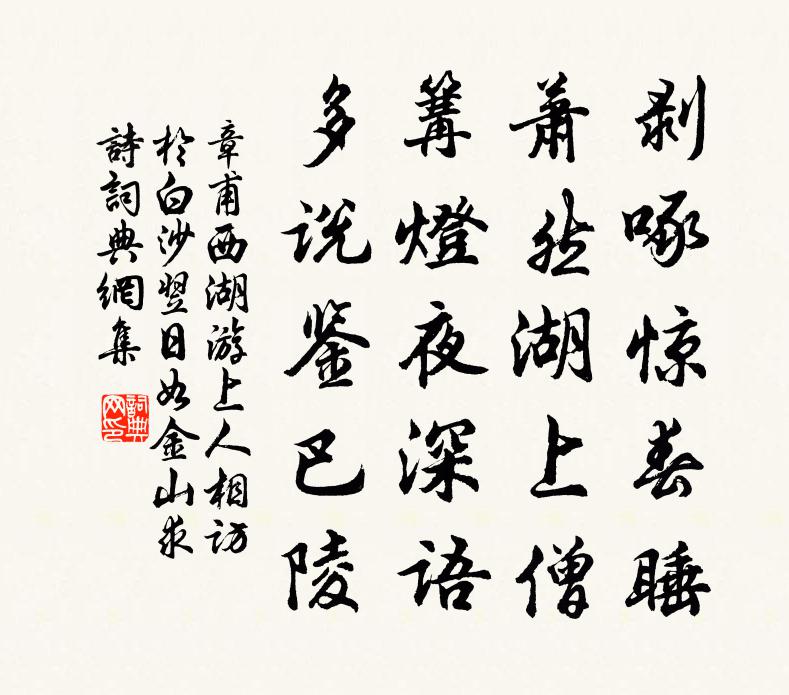 剥啄惊春睡
萧然湖上僧
篝燈夜深語
多说鉴巴陵
章甫西湖游上人相访
於白沙翌日如金山求
詩詞典網集
詞典网印